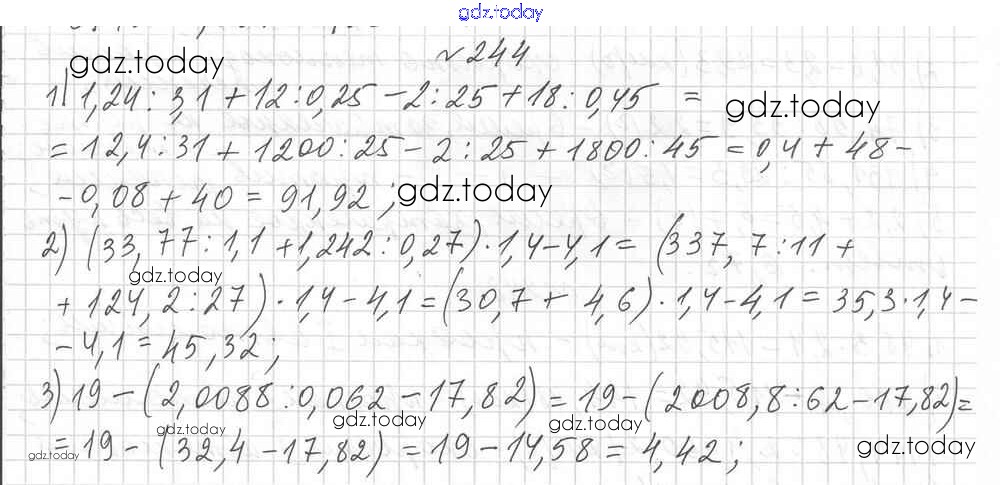 gdz.today
№ 244
gdz.today
1) 1,24 : 3,1 + 12 : 0,25 - 2 : 25 + 18 : 0,45 =
gdz.today
= 12,4 : 31 + 1200 : 25 - 2 : 25 + 1800 : 45 = 0,4 + 48 -
- 0,08 + 40 = 91,92 ;
gdz.today
2) (33,77 : 1,1 + 1,242 : 0,27) · 1,4 - 4,1 = (337,7 : 11 +
gdz.today
+ 124,2 : 27) · 1,4 - 4,1 = (30,7 + 4,6) · 1,4 - 4,1 = 35,3 · 1,4 -
- 4,1 = 45,32 ;
3) 19 - (2,0088 : 0,062 - 17,82) = 19 - (2008,8 : 62 - 17,82) =
gdz.today
gdz.today
= 19 - (32,4 - 17,82) = 19 - 14,58 = 4,42 ;
gdz.today
gdz.today